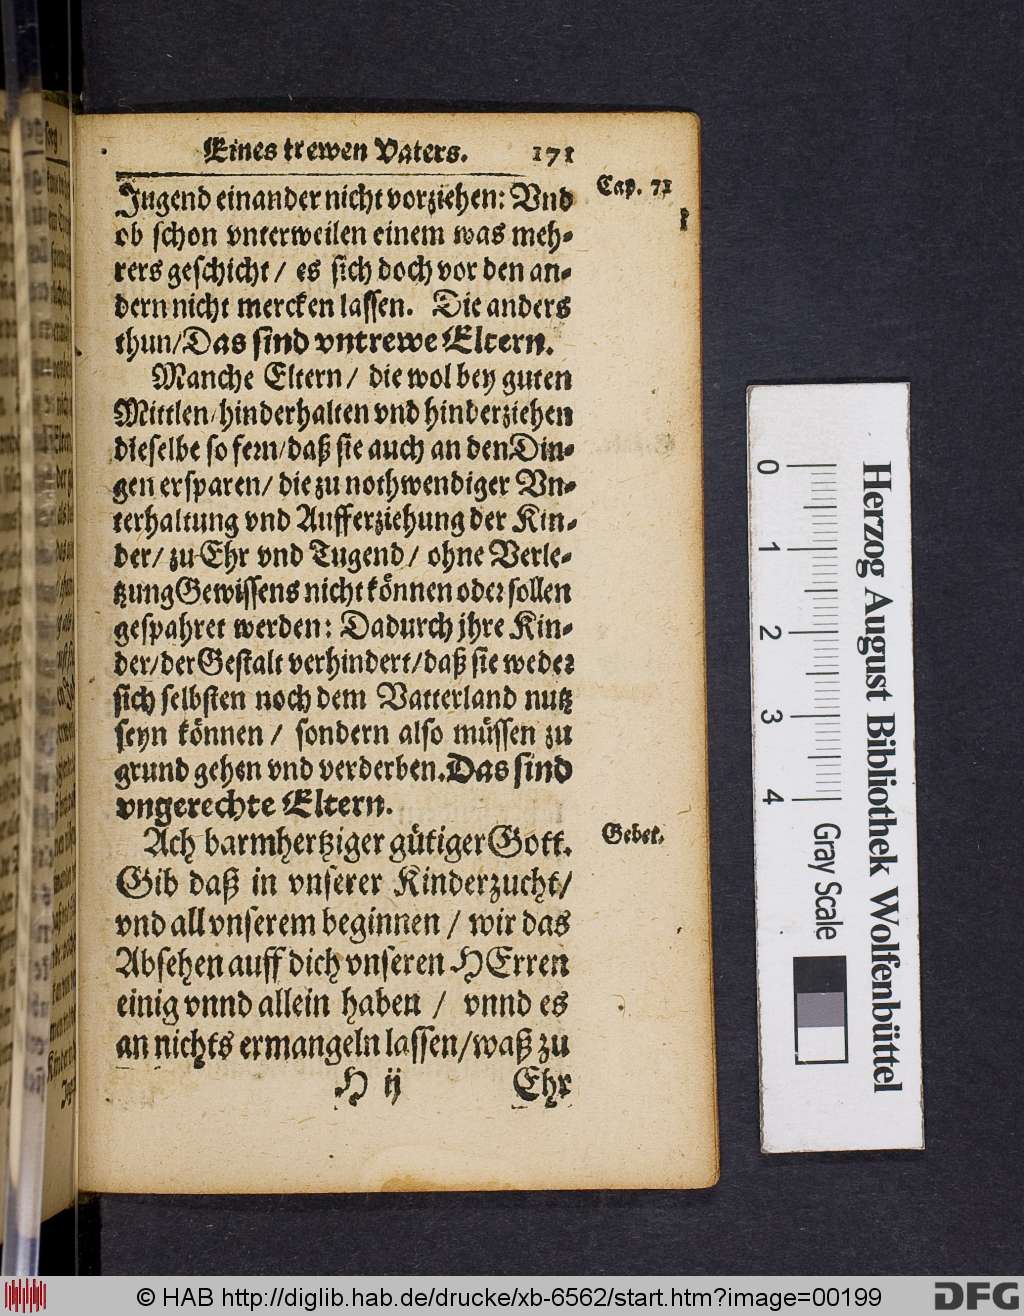 Eines trewen Vaters. 171
Jugend einander nicht vorziehen: Vnd
Cap. 71
ob schon vnterweilen einem was meh-
rers geschicht / es sich doch vor den an-
dern nicht mercken lassen. Die anders
thun/Das sind vntrewe Eltern.
Manche Eltern / die wol bey guten
Mittlen/hinderhalten vnd hinderziehen
dieselbe so fern/daß sie auch an den Din-
gen ersparen/ die zu nothwendiger Vn-
terhaltung vnd Aufferziehung der Kin-
der/ zu Ehr vnd Tugend / ohne Verle-
tzung Gewissens nicht können oder sollen
gespahret werden: Dadurch jhre Kin-
der/der Gestalt verhindert/daß sie weder
sich selbsten noch dem Vatterland nutz
seyn können / sondern also müssen zu
grund gehen vnd verderben. Das sind
vngerechte Eltern.
Ach barmhertziger gütiger Gott.
Gebet.
Gib daß in vnserer Kinderzucht/
vnd all vnserem beginnen / wir das
Absehen auff dich vnseren HErren
einig vnnd allein haben / vnnd es
an nichts ermangeln lassen/waß zu
H ij Ehr
0 1 2 3 4
Gray Scale
Herzog August Bibliothek Wolfenbüttel
© HAB http://diglib.hab.de/drucke/xb-6562/start.htm?image=00199
DFG